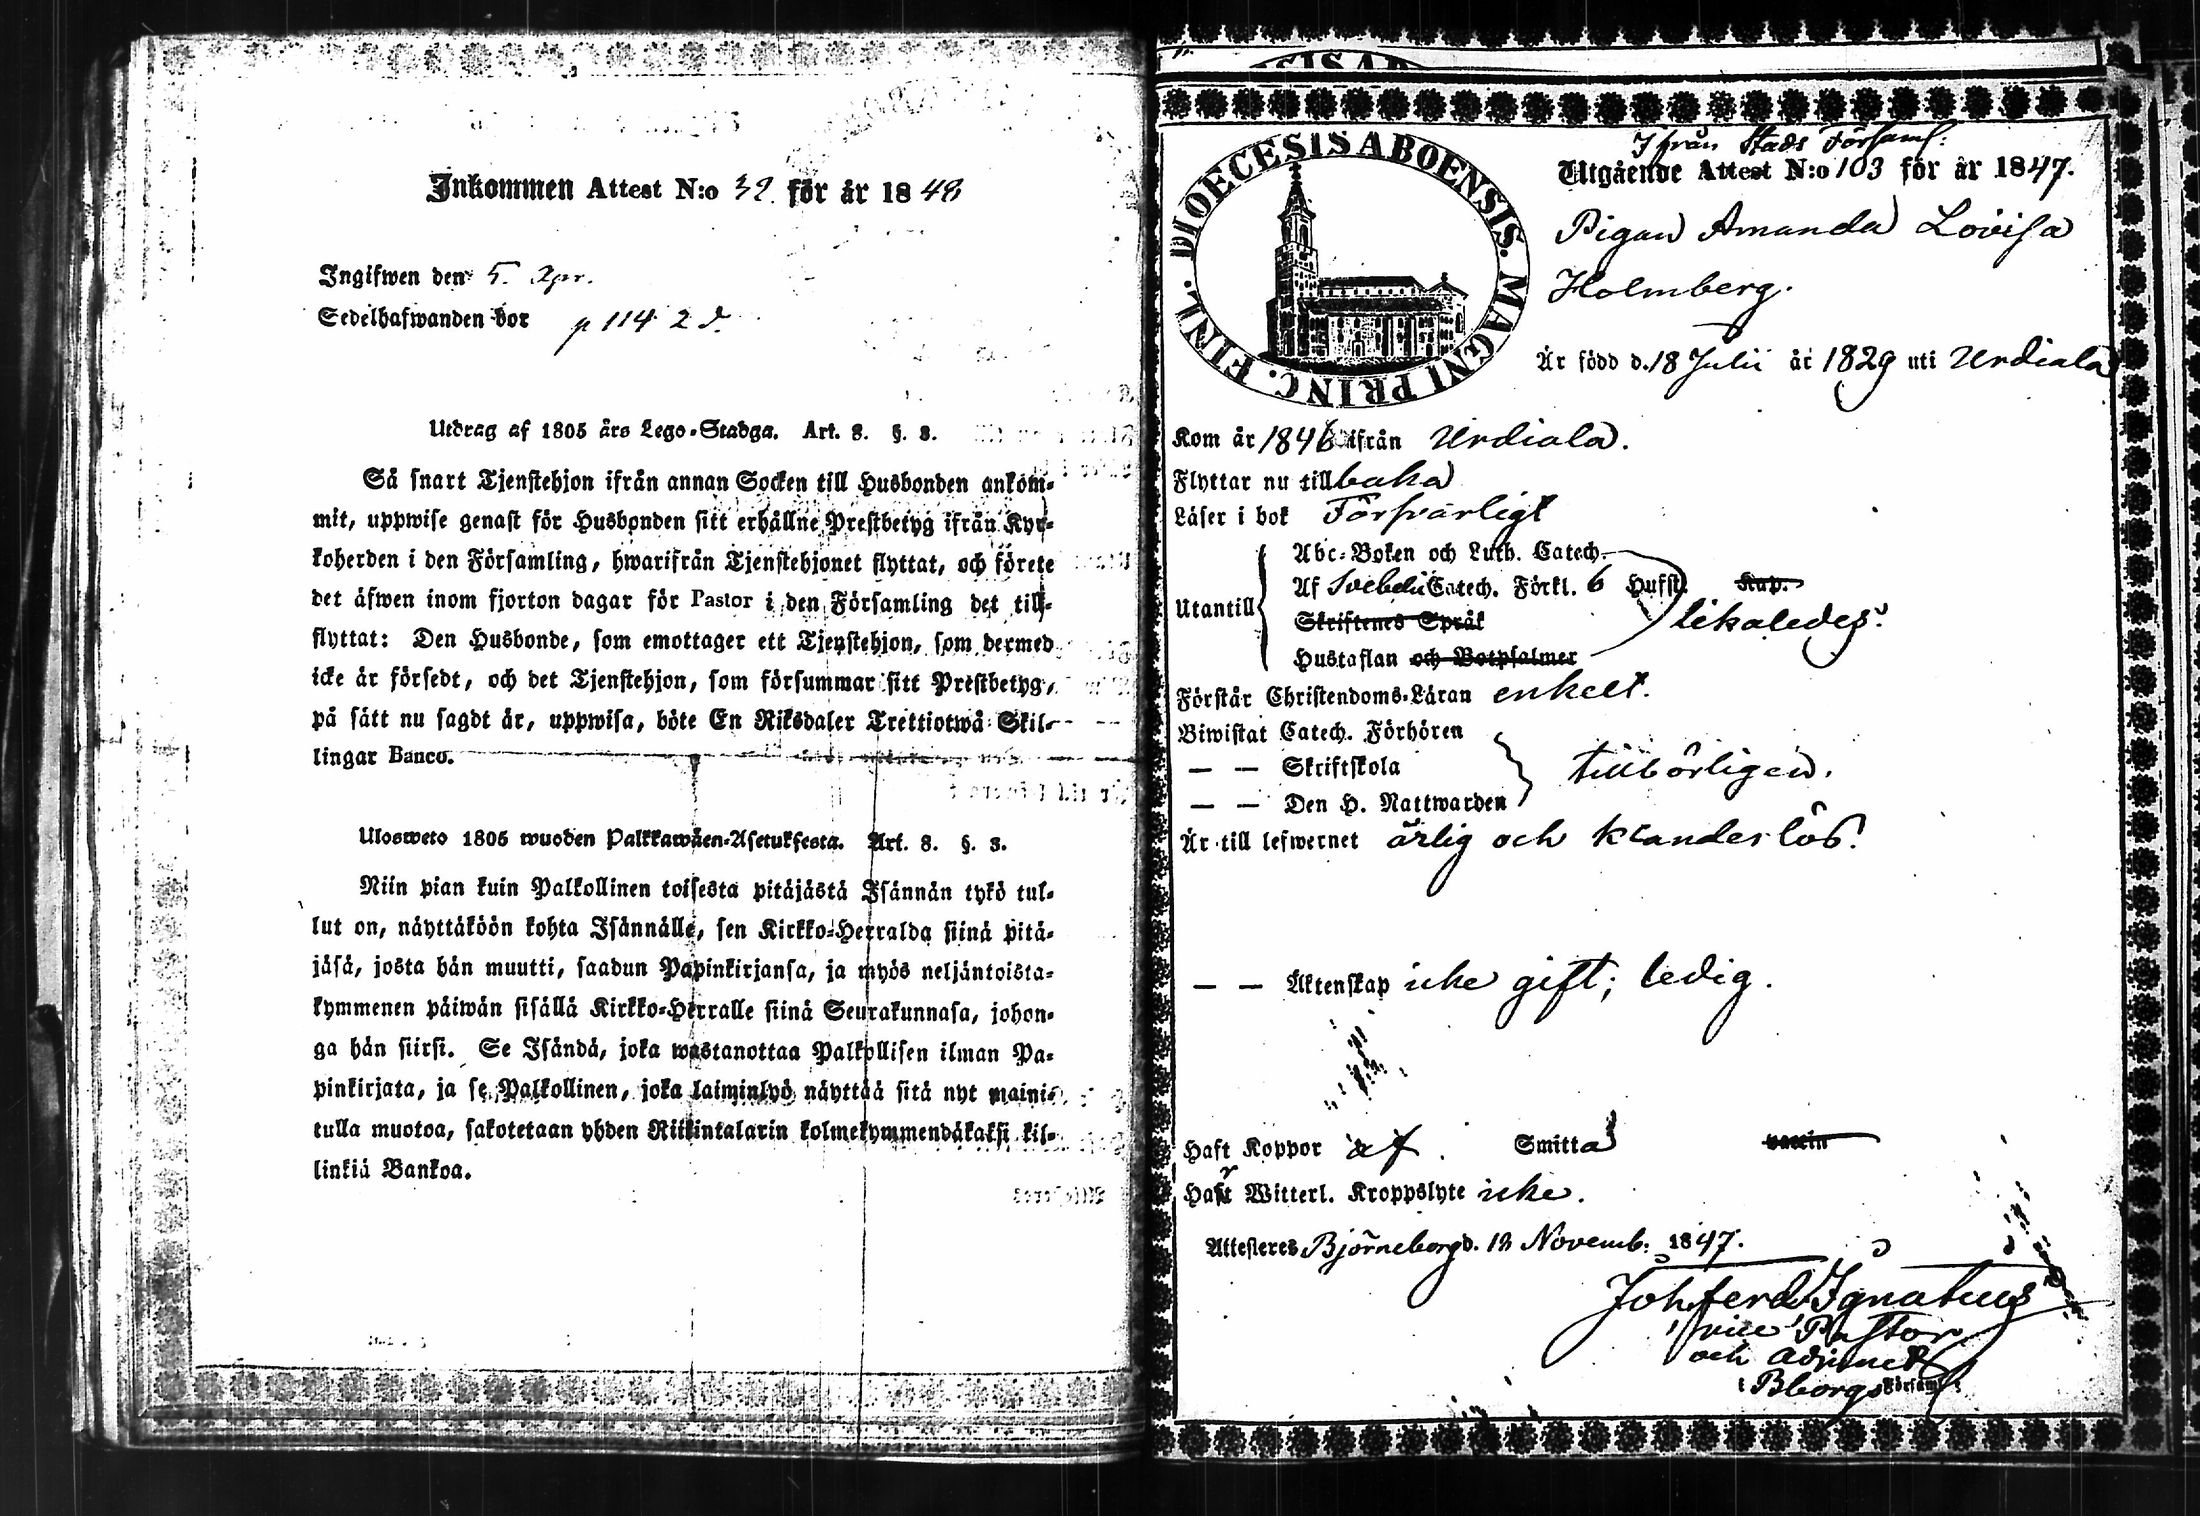 Inkommen Attest N:o 32. för år 1848
Ingifwen den 5. Apr.
Sedelhafwanden bor p 114 2 d.
Utdrag af 1805 års Lego-Stadga. Art. 8. §. 3.
Så snart Tjenstehjon ifrån annan Socken till Husbonden ankom-
mit, uppwise genast för Husbonden sitt erhållne Prestbetyg ifrån Kyr-
koherden i den Församling, hwarifrån Tjenstehjonet flyttat, och förete
det äfwen inom fjorton dagar för Pastor i den Församling det till-
flyttat: Den Husbonde, som emottager ett Tjenstehjon, som dermed
icke är försedt, och det Tjenstehjon, som försummar sitt Prestbetyg,
på sätt nu sagdt är, uppwisa, böte En Riksdaler Trettiotwå Skil-
lingar Banco.
Ulosweto 1805 wuoden Palkkawäen-Asetuksesta. Art. 8. §. 3.
Niin pian kuin Palkollinen toisesta pitäjästä Isännän tykö tul-
lut on, näyttäköön kohta Isännälle, sen Kirkko-Herralda siinä pitä-
jäsä, josta hän muutti, saadun Papinkirjansa, ja myös neljäntoista-
kymmenen päiwän sisällä Kirkko-Herralle siinä Seurakunnasa, johon-
ga hän siirsi. Se Isändä, joka wastanottaa Palkollisen ilman Pa-
pinkirjata, ja se Palkollinen, joka laiminlyö näyttää sitä nyt maini-
tulla muotoa, sakotetaan yhden Riikintalarin kolmekymmendäkaksi kil-
linkiä Bankoa.
DIOECESIS ABOENSIS. MAGNI PRINC. FINL.
Ifrån Stads Församl:
Utgående Attest N:o 103 för år 1847.
Pigan Amanda Lovisa
Holmberg.
Är född d. 18 Julii år 1829 uti Urdiala
Kom år 1846 ifrån Urdiala.
Flyttar nu tillbaka
Läser i bok Försvarligt
Utantill
Abc-Boken och Luth. Catech.
Af Svebelii Catech. Förkl. 6 Hufst. Kap.
Skriftenes Språk
likaledes.
Hustaflan och Botpsalmer
Förstår Christendoms-Läran enkelt.
Biwistat Catech. Förhören
— — Skriftskola tillbörligen.
— — Den H. Nattwarden
Är till lefwernet ärlig och klanderlös.
— — Äktenskap icke gift; ledig.
Haft Koppor af Smitta vaccin
Har Witterl. Kroppslyte icke.
Attesteres Björneborg d. 12 Novemb: 1847.
Joh. Ferd. Ignatius
vice Pastor
och
i Bborgs Församl: